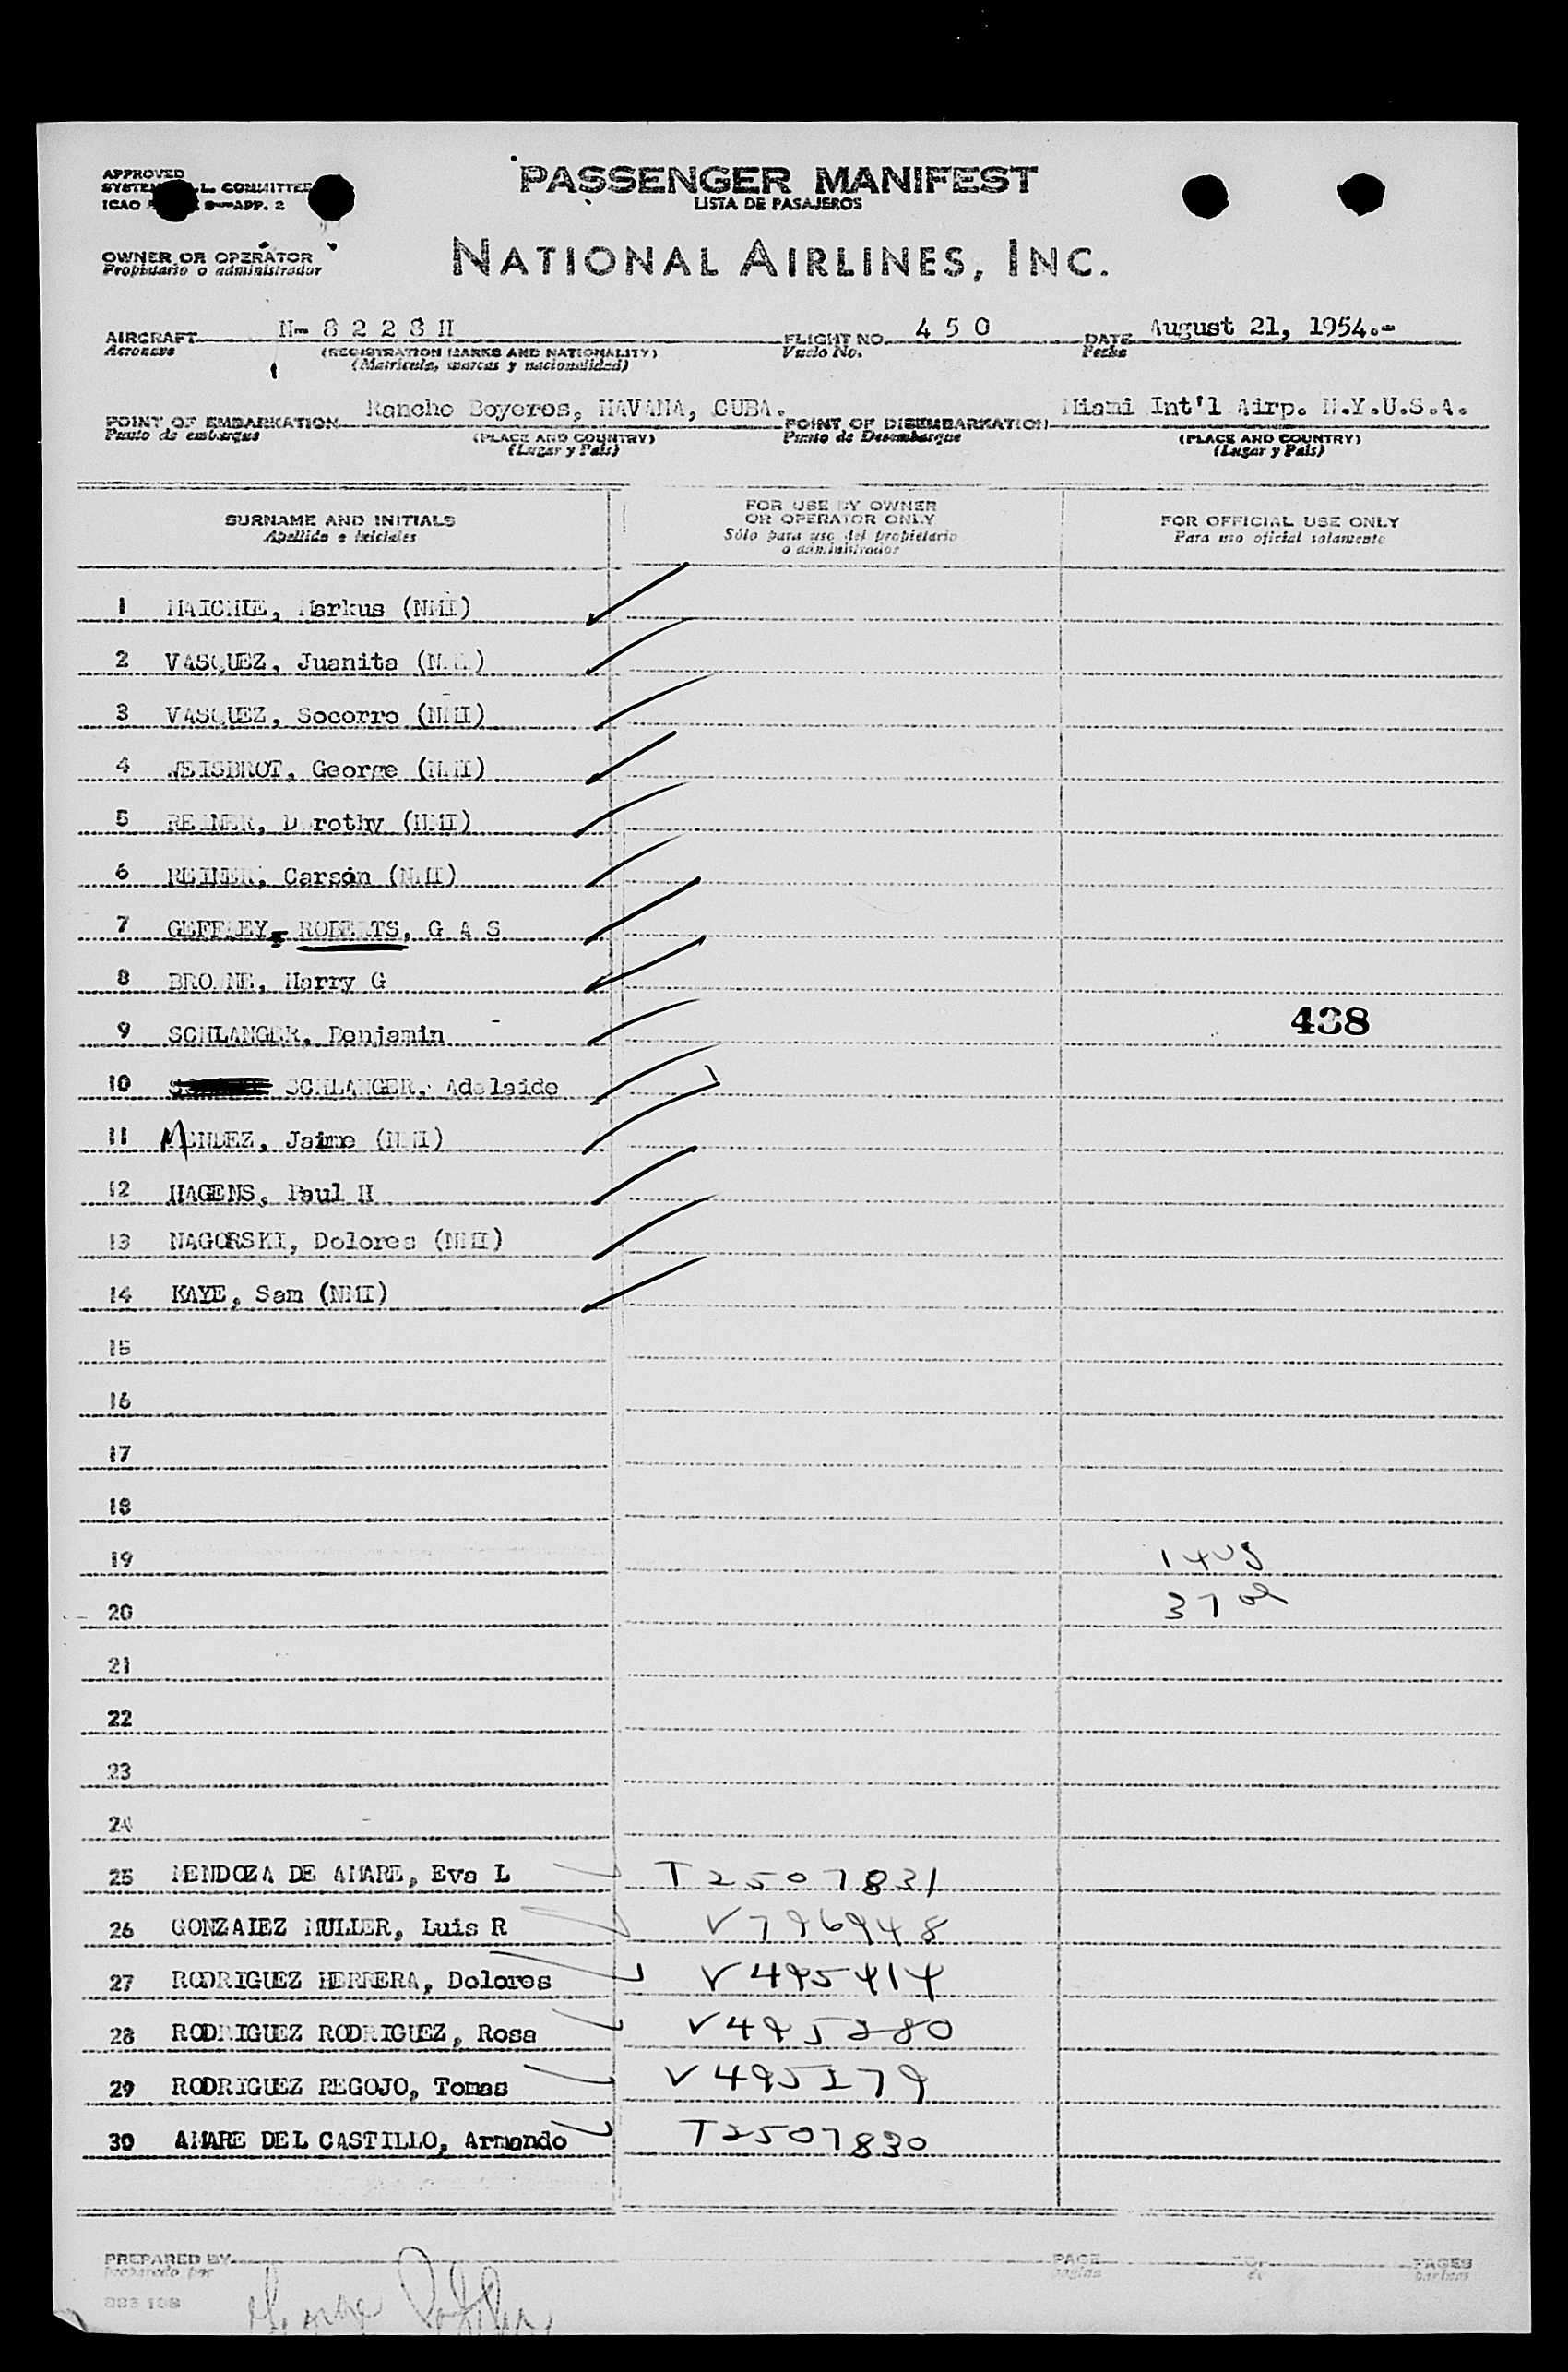 APPROVED
COMMITTEE
ICAO APP. 2
PASSENGER MANIFEST
LISTA DE PASAJEROS
OWNER OR OPERATOR
Propietario o administrador
NATIONAL AIRLINES, INC.
AIRCRAFT N- 8 2 2 8 H FLIGHT NO. 4 5 0 DATE August 21, 1954.-
Aeronave (REGISTRATION MARKS AND NATIONALITY) Vuelo No. Fecha
(Matricula, marcas y nacionalidad)
POINT OF EMBARKATION Rancho Boyeros, HAVANA, CUBA. POINT OF DISEMBARKATION Miami Int'l Airp. N.Y.U.S.A.
Punto de embarque (PLACE AND COUNTRY) Punto de Desembarque (PLACE AND COUNTRY)
(Lugar y Pais) (Lugar y Pais)
SURNAME AND INITIALS
Apellido e iniciales
FOR USE BY OWNER
OR OPERATOR ONLY
Sólo para uso del propietario
o administrador
FOR OFFICIAL USE ONLY
Para uso oficial solamente
1 Markus (NMI)
2 VASQUEZ, Juanita (NMI)
3 VASQUEZ, Socorro (NMI)
4 WEISBROT, George (NMI)
5 REINER, Dorothy (NMI)
6 REINER, Carson (NMI)
7 GEFFREY, ROBERTS, G A S
8 BROWNE, Harry G
9 SCHLANGER, Benjamin
438
10 SCHLANGER, Adelaide
11 MENDEZ, Jaime (NMI)
12 HAGENS, Paul H
13 NAGORSKI, Dolores (NMI)
14 KAYE, Sam (NMI)
15
16
17
18
19 14 US
20 37 al
21
22
23
24
25 MENDOZA DE AMARE, Eva L T2507831
26 GONZALEZ MULLER, Luis R V796948
27 RODRIGUEZ HERRERA, Dolores V495414
28 RODRIGUEZ RODRIGUEZ, Rosa V495280
29 RODRIGUEZ REGOJO, Tomas V495279
30 AMARE DEL CASTILLO, Armando T2507830
PREPARED BY PAGE OF PAGES
Preparado por